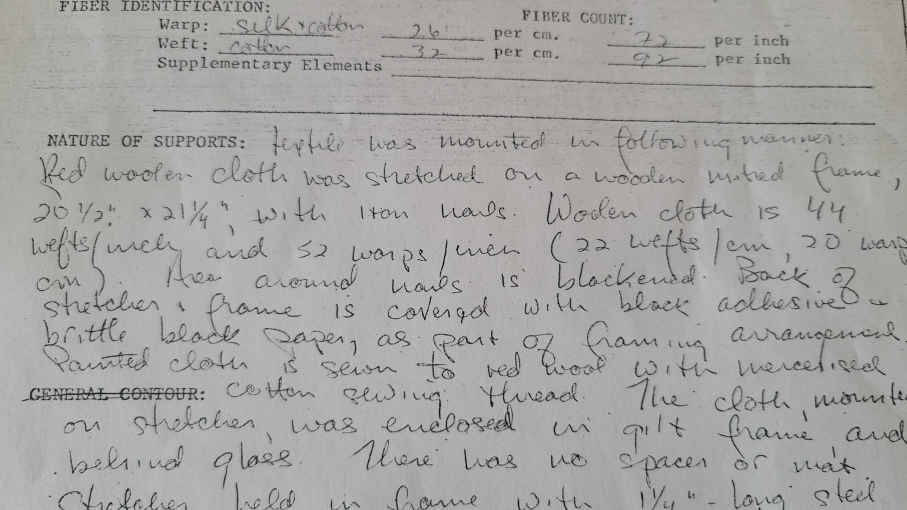 FIBER IDENTIFICATION:
FIBER COUNT:
Warp: silk + cotton 26 per cm. 72 per inch
Weft: cotton 32 per cm. 92 per inch
Supplementary Elements
NATURE OF SUPPORTS: textile was mounted in following manner:
Red woolen cloth was stretched on a wooden mitred frame,
20 1/2" x 21 1/4", with iron nails. Woolen cloth is 44
wefts/inch and 52 warps/inch (22 wefts/cm, 20 warp
cm). Area around nails is blackened. Back of
stretcher & frame is covered with black adhesive
brittle black paper, as part of framing arrangement.
Painted cloth is sewn to red wool with mercerised
GENERAL CONTOUR: cotton sewing thread. The cloth, mounte
on stretcher, was enclosed in gilt frame, and
behind glass. There was no spacer or mat
Stretcher held in frame with 1 1/4"-long steel